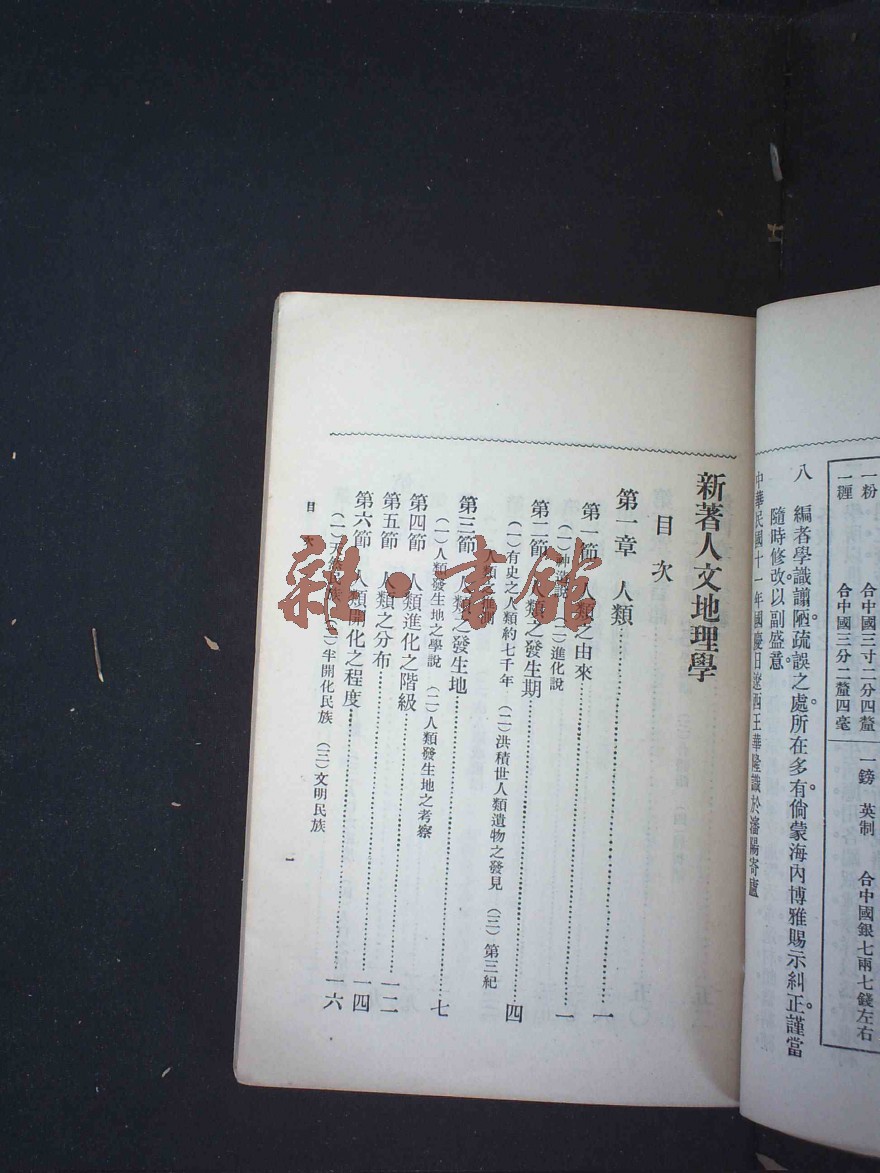 一粉 合中國三寸二分四釐
一糎 合中國三分二釐四毫
一鎊 英制 合中國銀七兩七錢左右
八 編者學識謭陋疏誤之處所在多有倘蒙海內博雅賜示糾正謹當
隨時修改以副盛意。
中華民國十一年國慶日遼西王華隆識於瀋陽寄廬
新著人文地理學
目次
第一章 人類……一
第一節 人類之由來……一
(一)神造說 (二)進化說
第二節 人類之發生期……四
(一)有史之人類約七千年 (二)洪積世人類遺物之發見 (三)第三紀
人類之推測
第三節 人類之發生地……七
(一)人類發生地之學說 (二)人類發生地之考察
第四節 人類進化之階級……一二
第五節 人類之分布……一四
第六節 人類開化之程度……一六
(一)天然民族 (二)半開化民族 (三)文明民族
目次
一
雜·書館